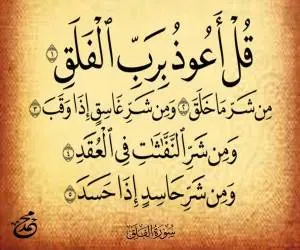 قُلْ أَعُوذُ بِرَبِّ ٱلْفَلَقِ ١
مِن شَرِّ مَا خَلَقَ ٢ وَمِن شَرِّ غَاسِقٍ إِذَا وَقَبَ ٣
وَمِن شَرِّ ٱلنَّفَّٰثَٰتِ فِى ٱلْعُقَدِ ٤
وَمِن شَرِّ حَاسِدٍ إِذَا حَسَدَ ٥
سُورَةُ الفَلَقِ